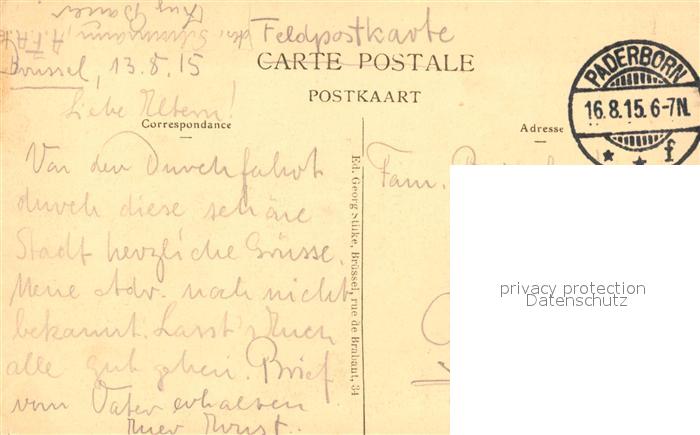 Feldpostkarte
CARTE POSTALE
POSTKAART
Brüssel, 13.8.15
Liebe Eltern!
Correspondance
Von der Durchfahrt
durch diese schöne
Stadt herzliche Grüsse.
Meine Adr. noch nicht
bekannt. Lasst's Euch
alle gut gehen. Brief
vom Vater erhalten
Euer Ernst.
Ed. Georg Stilke, Brüssel, rue de Brabant, 34
Adresse
Fam.
PADERBORN
16.8.15.6-7N.
* * f
privacy protection
Datenschutz